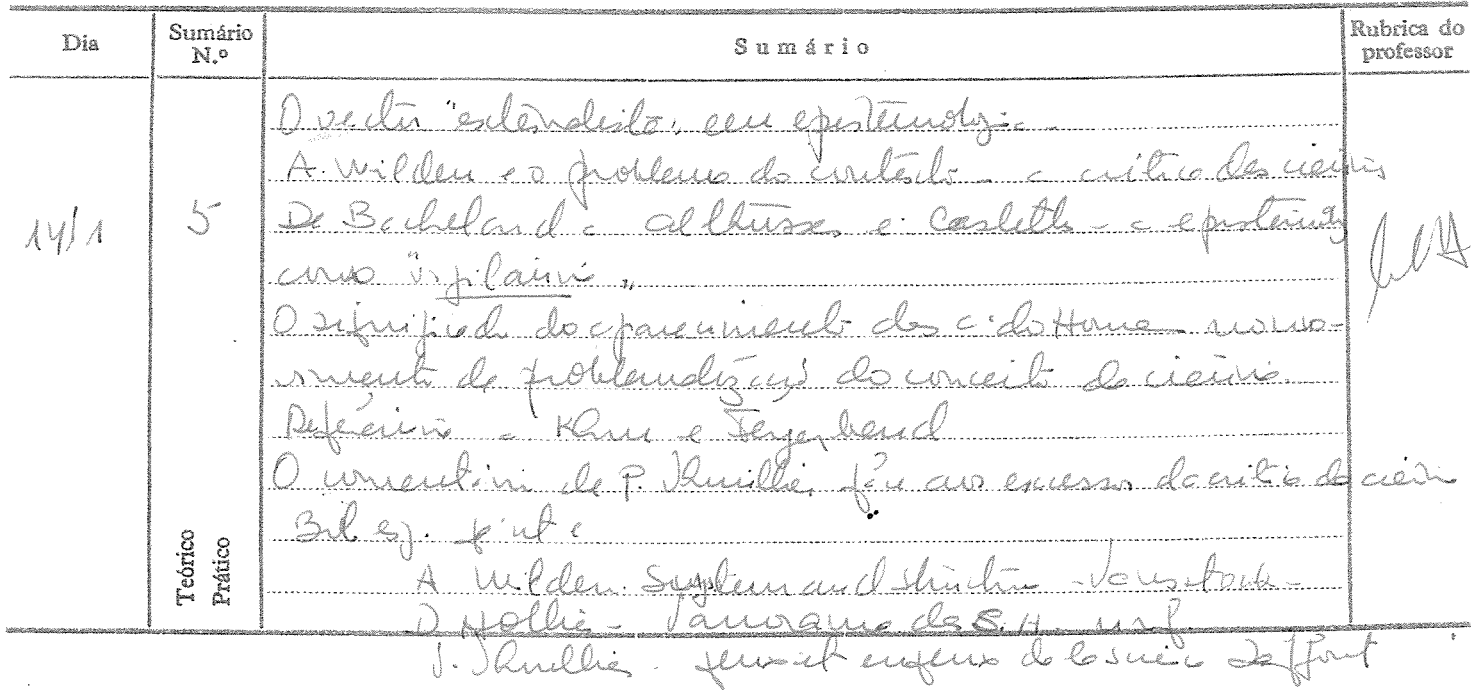 Dia
Sumário N.º
Sumário
Rubrica do professor
14/1
5
O vector "externalista" em epistemologia
A. Wilden e o problema do contexto - a crítica das ciências
De Bachelard a Althusser e Castells - a epistemologia
como "vigilância"
O significado do aparecimento das c. do Homem no mo-
vimento de problematização do conceito de ciência.
Referência a Khun e Feyerabend
O comentário de P. Thuillier face aos excessos da crítica da ciência
Teórico
Prático
A Wilden. System and structure - Tavistock -
D Hollier - Panorama des S.H. n.r.f.
J. Thuillier. jeux et enjeux de la science Laffont